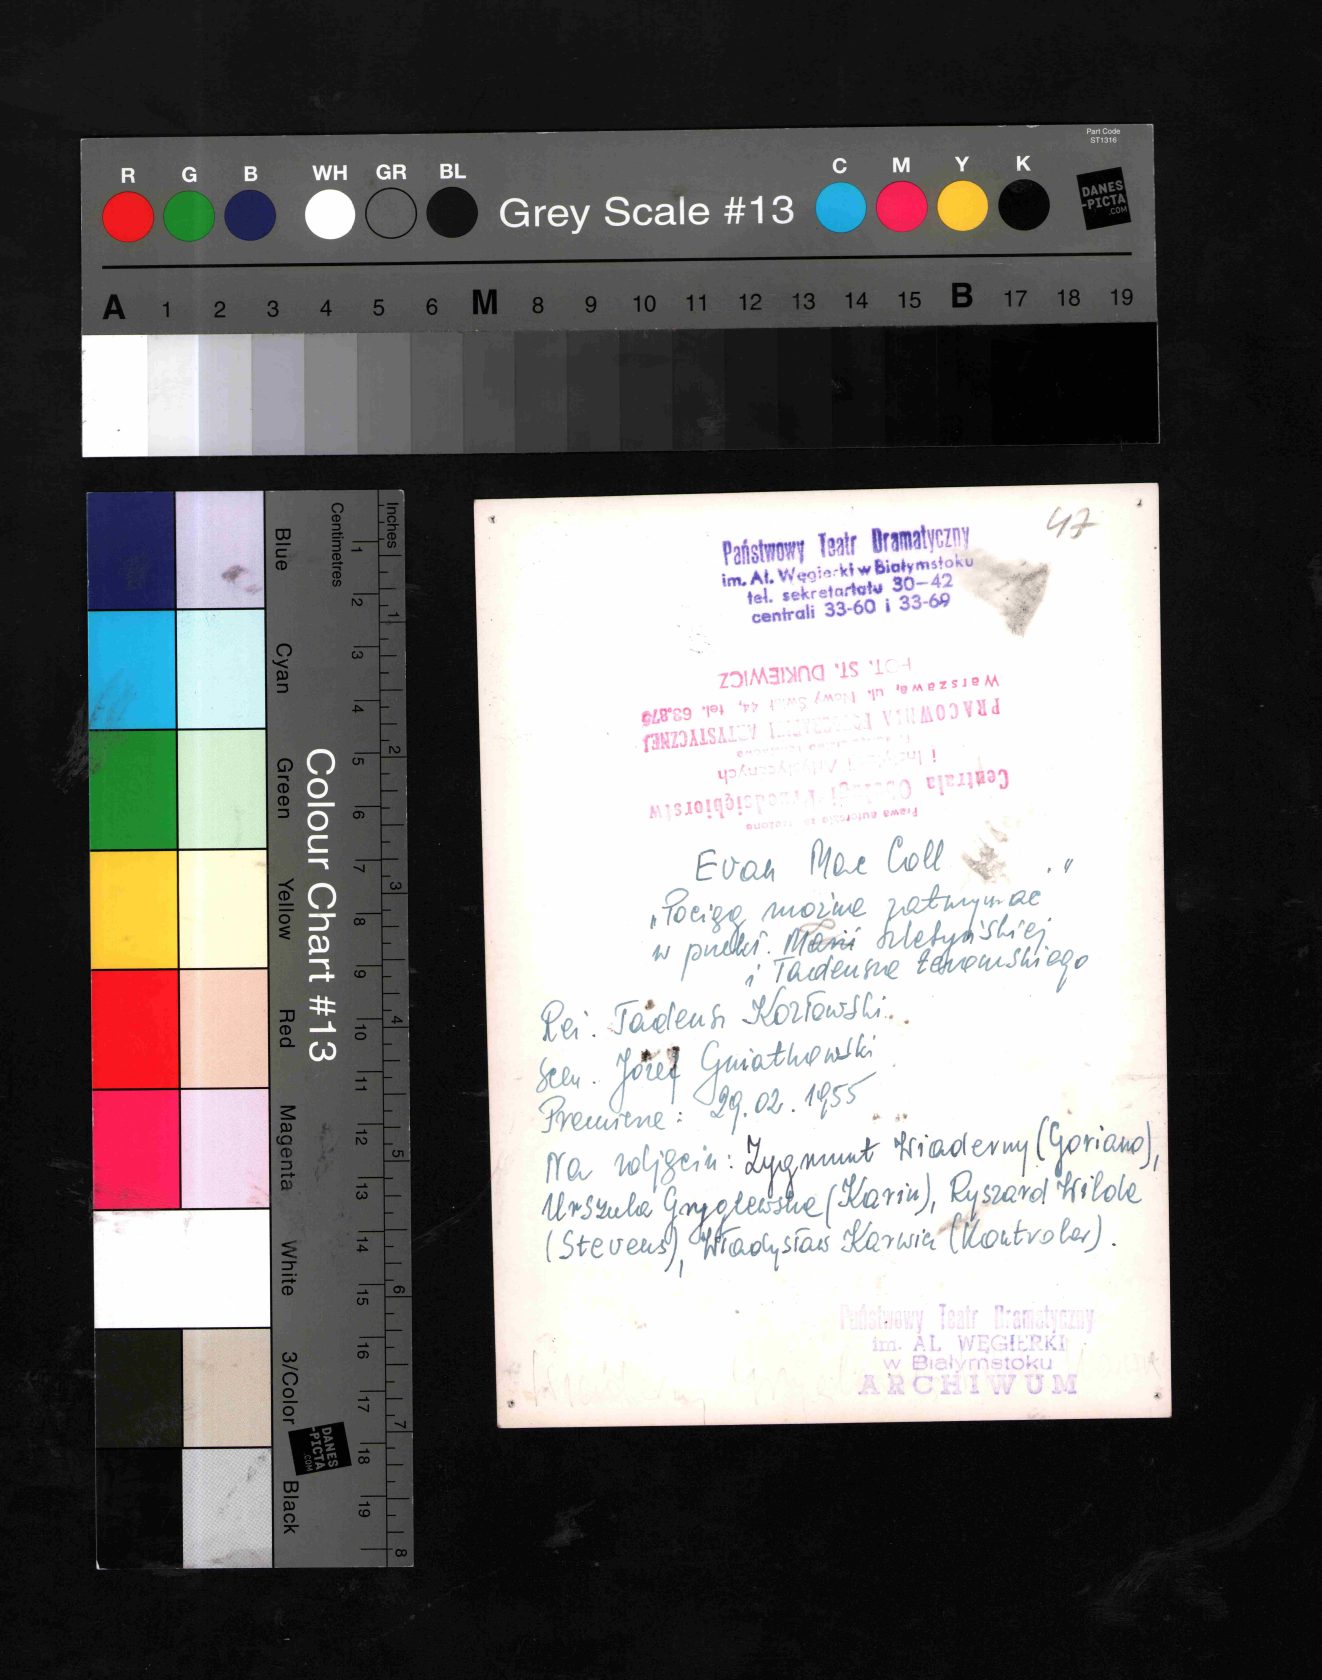 Part Code
ST1316
R G B WH GR BL Grey Scale #13 C M Y K
DANES
-PICTA
.COM
A 1 2 3 4 5 6 M 8 9 10 11 12 13 14 15 B 17 18 19
Colour Chart #13
Blue
Cyan
Green
Yellow
Red
Magenta
White
3/Color
Black
DANES
-PICTA
.COM
Centimetres
1 2 3 4 5 6 7 8 9 10 11 12 13 14 15 16 17 18 19
Inches
1 2 3 4 5 6 7 8
47
Państwowy Teatr Dramatyczny
im. Al. Węgierki w Białymstoku
tel. sekretariatu 30-42
centrali 33-60 i 33-69
Prawa autorskie
Centrala Obsługi Przedsiębiorstw
i Artystycznych
PRACOWNIA ARTYSTYCZNEJ
Warszawa, ul. Nowy Świat 44, tel. 63.875
FOT. ST. DUKIEWICZ
Evan Mac Coll
„Pociąg można zatrzymać"
w przekł.
i Tadeusza Żeromskiego
Reż. Tadeusz Kozłowski
Scen. Józef Gniatkowski
Premiera: 29.02.1955
Na zdjęciu: Zygmunt Wiaderny (Goriano),
Urszula Gryglewska (Karin), Ryszard Wilda
(Stevens), Władysław Karwin (Kontroler).
Państwowy Teatr Dramatyczny
im. AL WĘGIERKI
w Białymstoku
ARCHIWUM